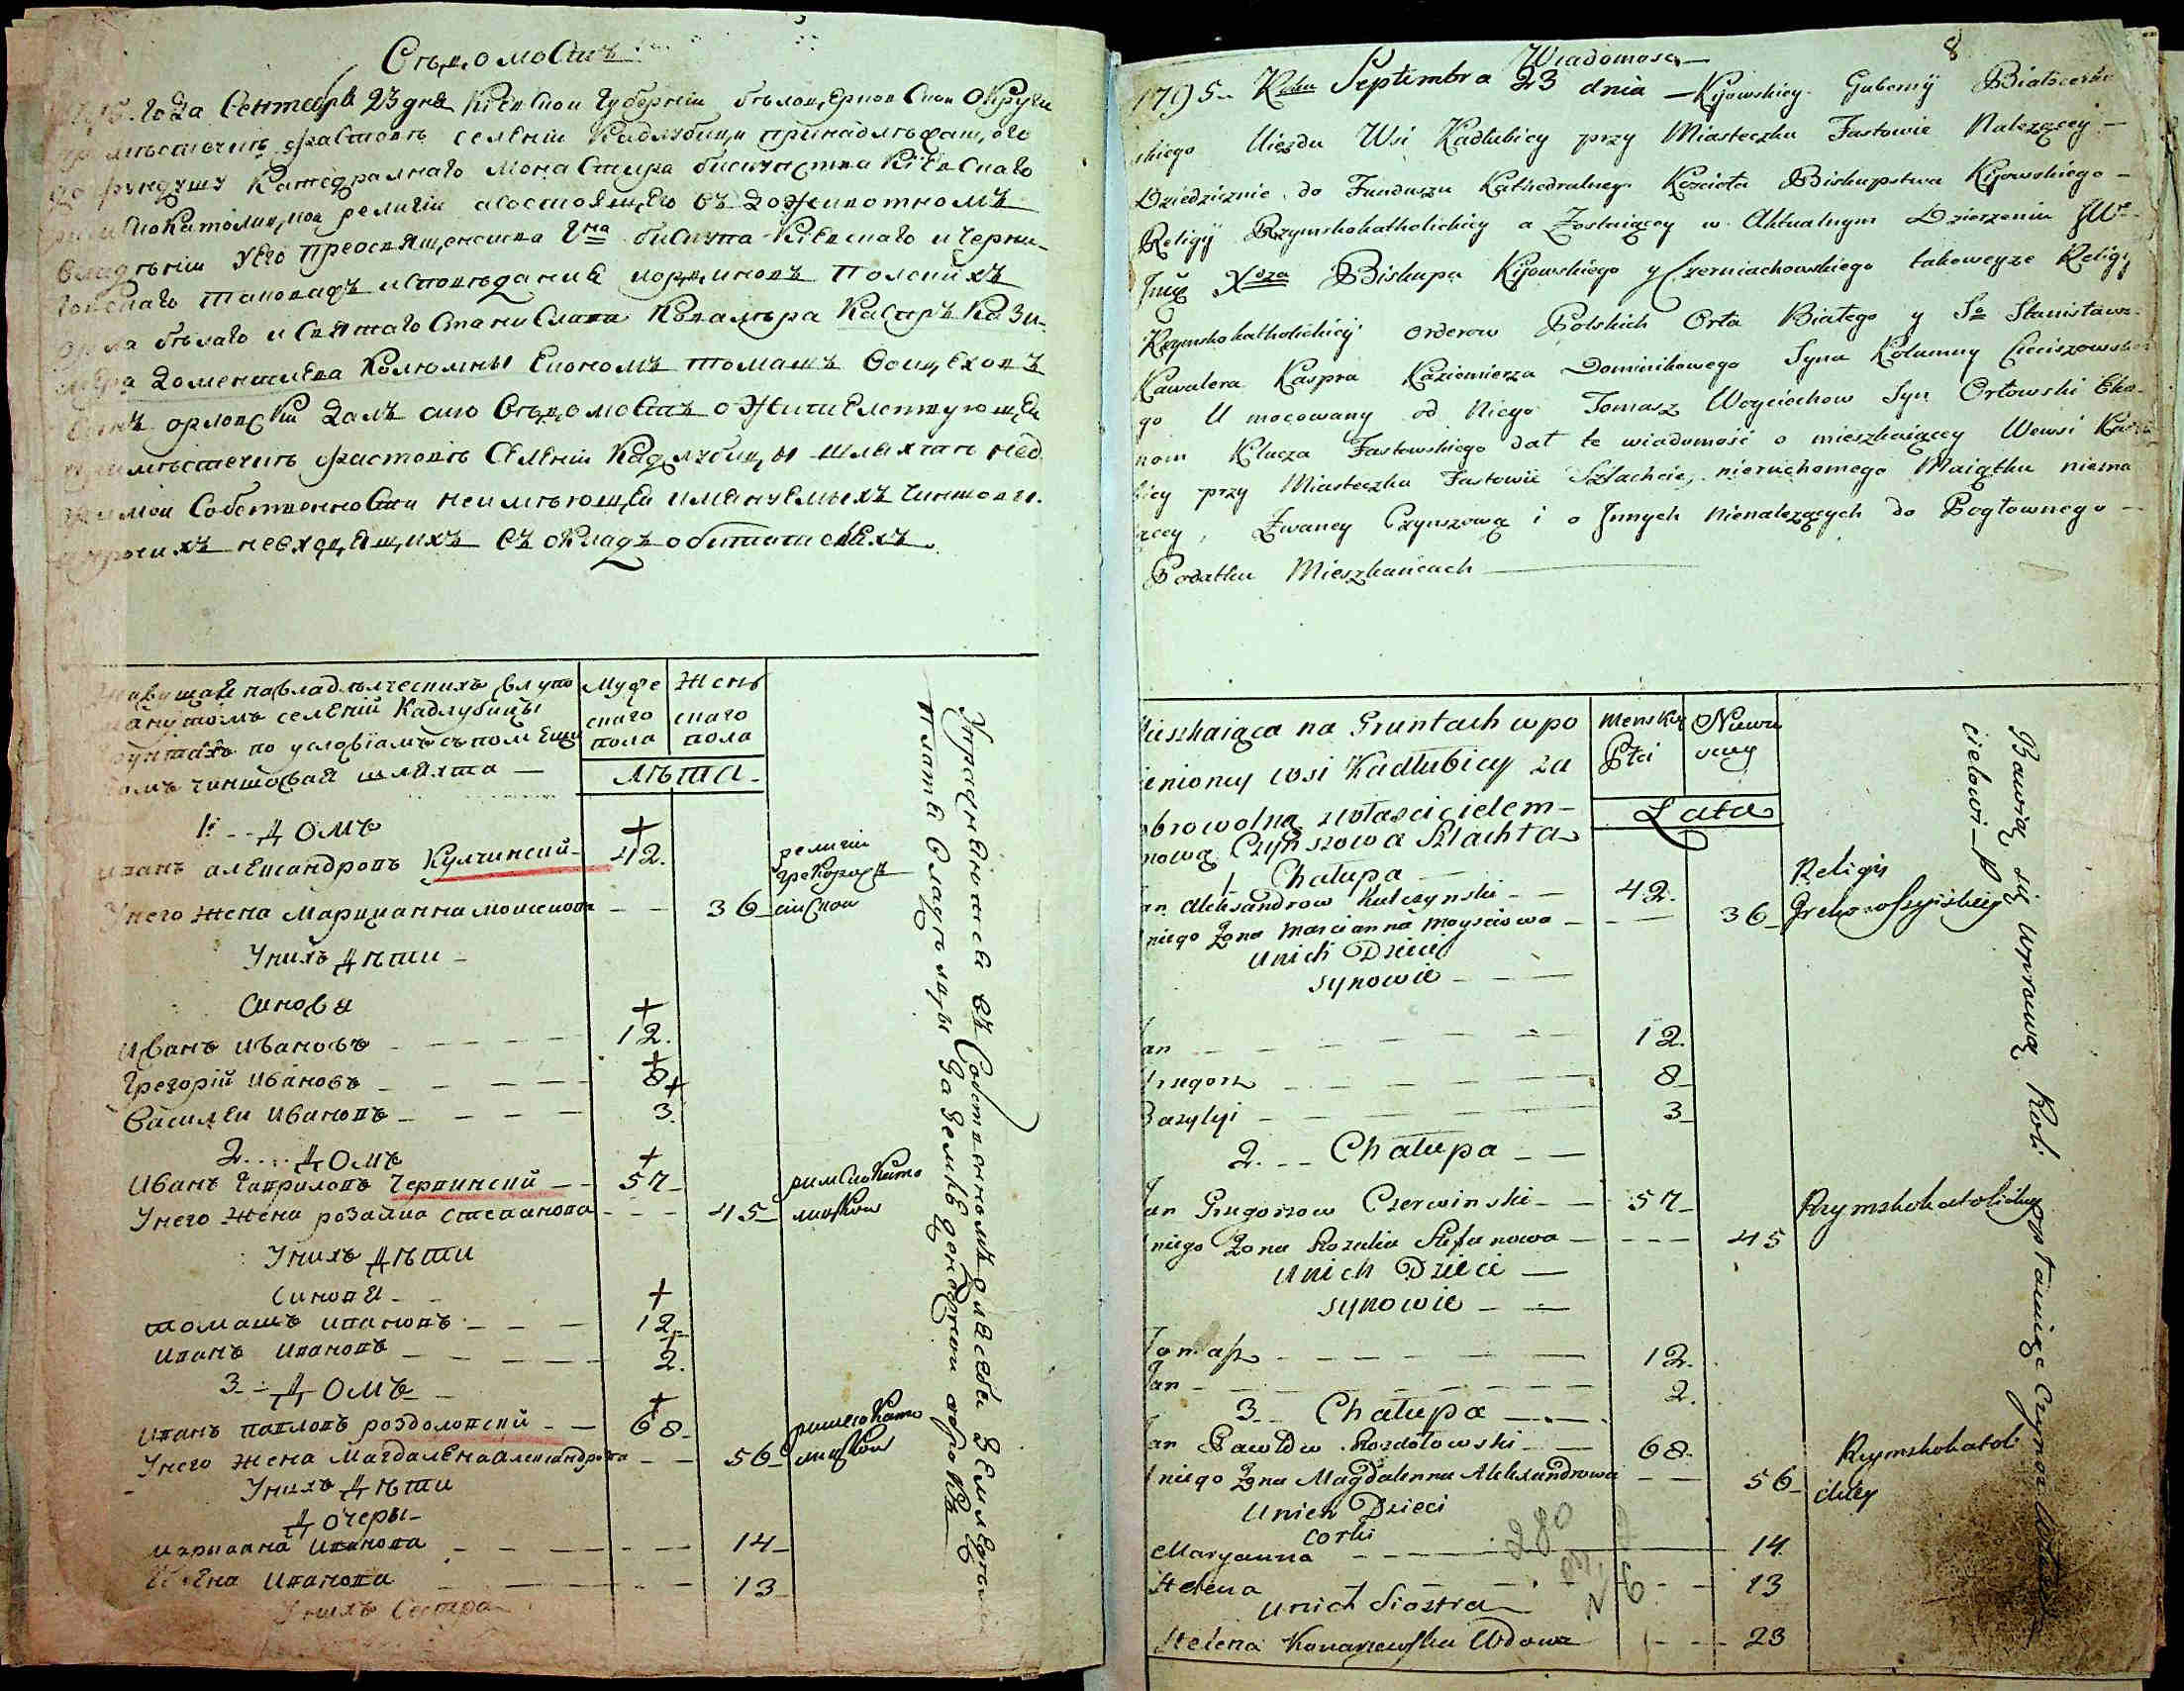 Свѣдомость
1795. года Сентября 23 дня Кіевской Губерніи бѣлоцерковской Округи
при мѣстечкѣ фастовѣ селеніи Кадлубици принадлежащого
до фундушу Катедралнаго монастира бискупства Кіевскаго
римскокатолицкой религіи а состоящего въ доживотномъ
владѣніи его преосвященства Гна бискупа Кіевскаго и черни-
говскаго таковаго исповеданія орденовъ Полскихъ
орла бѣлаго и святаго Станислава Ковалера Каспра Кази-
мѣра Доментиева Колюмны Економъ томашъ Войцеховъ
сынъ орловскій далъ сию свѣдомость о жительствующей
при мѣстечкѣ фастовѣ селеніи Кадлубици шляхтѣ нед
жимой собственности неимѣющей именуемыхъ чиншови.
и прочихъ невходящихъ въ окладъ обитателехъ
Живущая на владѣлческихъ въ упо
мянутомъ селеніи Кадлубицы
грунтахъ по условіамъ съ помещи
комъ чиншовая шляхта —
Муже
скаго
пола
Жень
скаго
пола
лѣта
1. - - Домъ
иванъ александровъ Кулчинский 42.
религіи
грекоросі
ийской
У него жена Марцианна моисиова - - 36
У нихъ дѣти -
Синовя
иванъ ивановъ - - - 12.
Грегорій ивановъ - - - 8
Василей ивановъ - - - 3.
2. . . . Домъ
иванъ гавриловъ Червинский - - 57
римскокато
лицкой
У него жена розалиа степанова - - - 45
У нихъ дѣти
Синовя - -
томашъ ивановъ - - - 12
иванъ ивановъ - - - 2.
3 - - Домъ -
иванъ павловъ роздоловский - - 68
римскокато
лицкой
У него жена Магдалена Александрова - - 56
У нихъ дѣти
Дочеры -
марианна иванова - - - 14
Елена иванова - - - 13
У нихъ сестра
Упражняются въ собственномъ для себя земледелии
платя владѣлцу за землю денежной оброкъ
8
Wiadomosc —
1795 Roku Septembra 23 dnia — Kijowskiey Guberny Białocerkie
wskiego Uiezdu Wsi Kadłubicy przy Miasteczku Fastowie Należącey —
Dziedzicznie do Funduszu Kathedralneg. Kościoła Biskupstwa Kijowskiego —
Religij Rzymskokatholickiey a Zostaiącey w Aktualnym Dzierzeniu JWo
Jmć Xdza Biskupa Kijowskiego y Czerniachowskiego takoweyże Religij
Rzymskokatholickiey orderow Polskich Orła Białego y So Stanisława
Kawalera Kaspra Kaziemierza Dominikowego Syna Kolumny Cieciszowskie
go Umocowany od Niego Tomasz Woyciechow Syn Orłowski Eko-
nom Klucza Fastowskiego dał te wiadomość o mieszkaiącey Wewsi Kadłu
bicy przy Miasteczku Fastowie Szlachcie, nieruchomego Maiątku niema
iącey, Zwaney Czynszową i o Jnnych Nienależących do Pogłownego —
Podatku Mieszkańcach
Mieszkaiąca na Gruntach wpo
mienioney wsi Kadłubicy za
dobrowolną z właścicielem -
umową Czynszowa Szlachta
Menskiey
Płci
Niewie
sciey
Lata
1 Chałupa —
Jan Aleksandrow Kulczynski - - 42.
Religij
Grekorossyiskiey
Uniego Zona Marcianna Moysiiowa - - - 36
Unich Dzieci
synowie - - -
Jan - - - 12.
Grzegorz - - - 8
Bazylyi - - - 3
2. - - Chałupa - -
Jan Grzegorzow Czerwinski - - 57
Rzymskokatolickiey
Uniego Zona Rozalia Stefanowa - - - 45
Unich Dzieci —
synowie - -
Tomasz - - - 12.
Jan - - - 2.
3 - - Chałupa - -
Jan Pawłow Rozdołowski - - 68.
Rzymskokatoli
ckiey
Uniego Zona Magdalenna Alexandrowa - - 56
Unich Dzieci
corki
Maryanna - - - 14
Helena - - - 13
Unich Siostra
Helena Konarzewska Wdowa - - - 23
Bawią się uprawą Roli płacąc Czynsz Właś
cicielowi
280